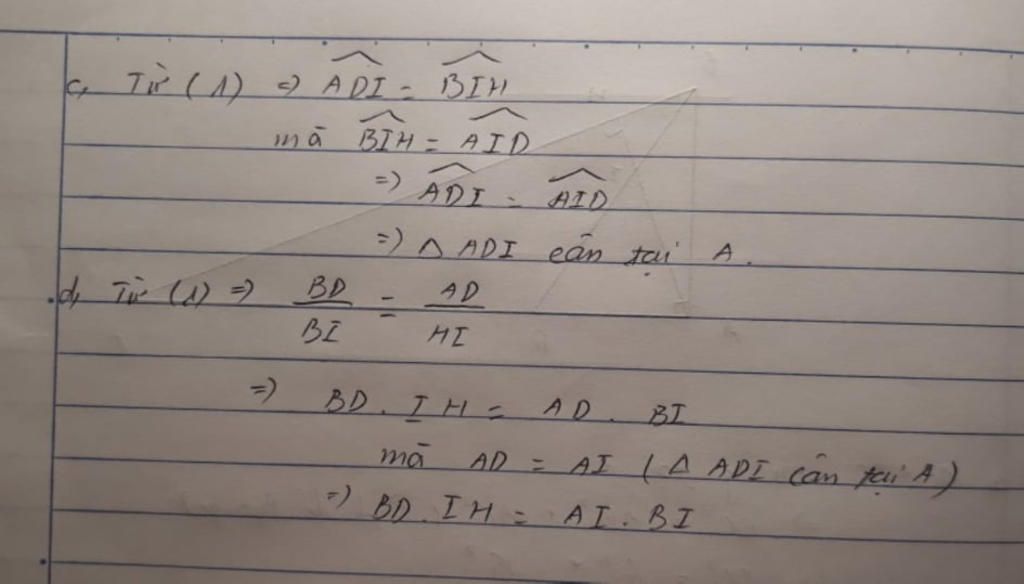 c, Từ (1) => ADI = BIH
mà BIH = AID
=> ADI = AID
=> △ ADI cân tại A.
d, Từ (1) => BD/BI = AD/HI
=> BD . IH = AD . BI
mà AD = AI (△ ADI cân tại A)
=> BD . IH = AI . BI